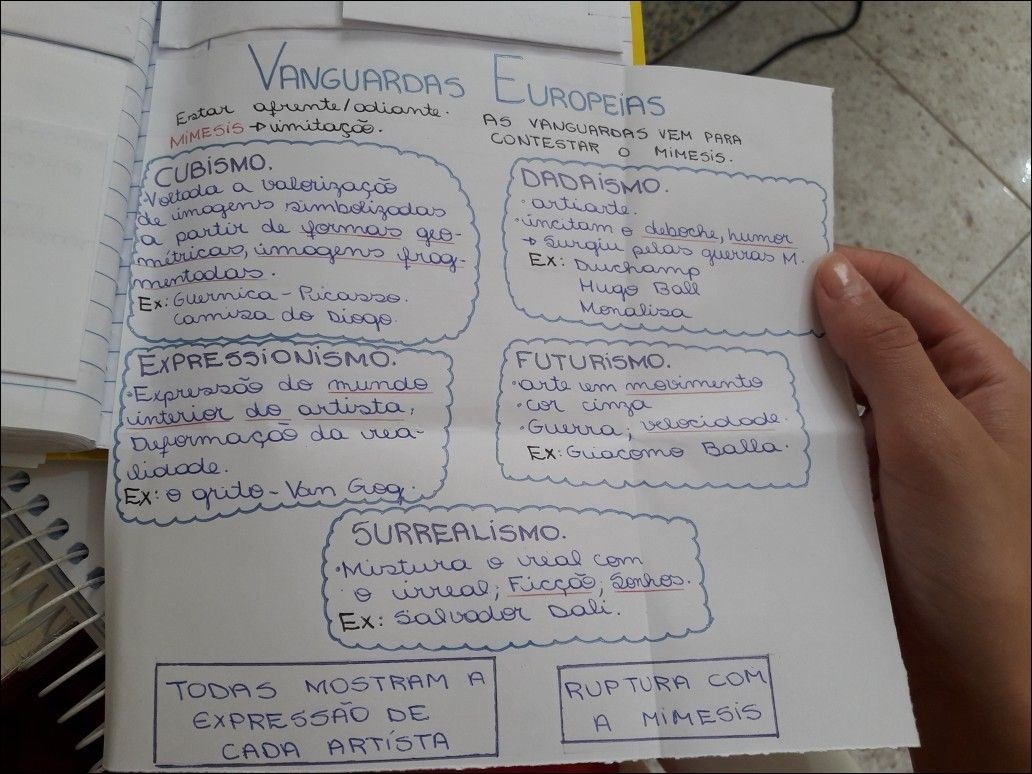 VANGUARDAS EUROPEIAS
Estar afrente/adiante.
MIMESIS → imitação.
AS VANGUARDAS VEM PARA
CONTESTAR O MIMESIS.
CUBISMO.
• Voltada a valorização
de imagens simbolizadas
a partir de formas geo-
métricas, imagens frag-
mentadas.
Ex: Guernica - Picasso.
Camisa do Diogo.
DADAÍSMO.
• artiarte.
• incitam o deboche, humor
→ Surgiu pelas guerras M.
Ex: Duchamp
Hugo Ball
Monalisa
EXPRESSIONISMO.
• Expressão do mundo
interior do artista,
Deformação da rea-
lidade.
Ex: o grito - Van Gog.
FUTURISMO.
• arte em movimento
• cor cinza
• Guerra; velocidade.
Ex: Giacomo Balla.
SURREALISMO.
• Mistura o real com
o irreal; Ficção; Sonhos.
Ex: Salvador Dali.
TODAS MOSTRAM A
EXPRESSÃO DE
CADA ARTÍSTA
RUPTURA COM
A MIMESIS